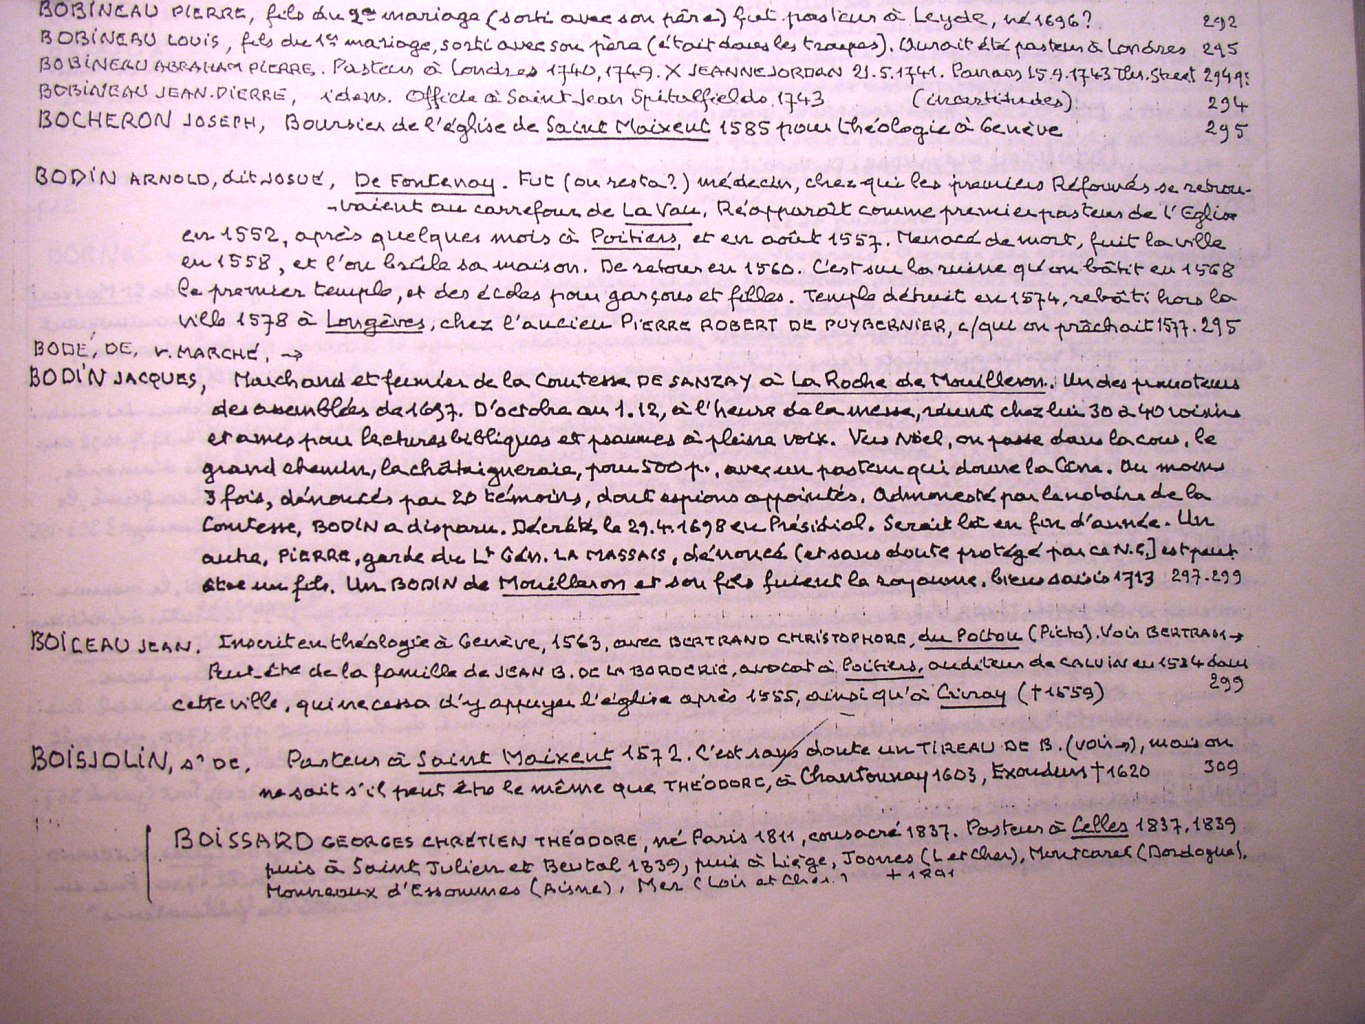 BOBINEAU PIERRE, fils du 2e mariage (sorti avec son père) fut pasteur à Leyde, né 1696? 292
BOBINEAU LOUIS, fils du 1er mariage, sorti avec son père (était dans les troupes). Aurait été pasteur à Londres 295
BOBINEAU ABRAHAM PIERRE. Pasteur à Londres 1740, 1749. X JEANNE JORDAN 21.5.1741. Parrain 15.9.1743 Street
BOBINEAU JEAN-PIERRE, idem. Officie à Saint Jean Spitalfields, 1743 (incertitudes) 294
BOCHERON JOSEPH, Boursier de l'église de Saint Maixent 1585 pour théologie à Genève 295
BODIN ARNOLD, dit JOSUÉ, De Fontenay. Fut (ou resta?) médecin, chez qui les premiers Réformés se retrou-
-vaient au carrefour de La Vau. Réapparaît comme premier pasteur de l'Eglise
en 1552, après quelques mois à Poitiers, et en août 1557. Menacé de mort, fuit la ville
en 1558, et l'on brûle sa maison. De retour en 1560. C'est sur la ruine qu'on bâtit en 1568
le premier temple, et des écoles pour garçons et filles. Temple détruit en 1574, rebâti hors la
ville 1578 à Longèves, chez l'ancien PIERRE ROBERT DE PUYBERNIER, c/qui on prêchait 1577. 295
BODÉ, DE, v. MARCHÉ, →
BODIN JACQUES, Marchand et fermier de la Comtesse DE SANZAY à La Roche de Mouilleron. Un des promoteurs
des assemblées de 1697. D'octobre au 1.12, à l'heure de la messe, réunit chez lui 30 à 40 voisins
et amis pour lectures bibliques et psaumes à pleine voix. Vers Noël, on passe dans la cour, le
grand chemin, la châtaigneraie, pour 500 p., avec un pasteur qui donne la Cène. Au moins
3 fois, dénoncés par 20 témoins, dont espions appointés. Admonesté par le notaire de la
Comtesse, BODIN a disparu. Décrété le 29.4.1698 en Présidial. Serait let en fin d'année. Un
autre, PIERRE, garde du Lt Gén. LA MASSAIS, dénoncé (et sans doute protégé par ce N.C.] est peut
être un fils. Un BODIN de Mouilleron et son fils fuient le royaume, biens saisis 1713 297-299
BOICEAU JEAN. Inscrit en théologie à Genève, 1563, avec BERTRAND CHRISTOPHORE, du Poitou (Picto). Voir BERTRAM →
Peut-être de la famille de JEAN B. DE LA BORDERIE, avocat à Poitiers, auditeur de CALVIN en 1534 dans
cette ville, qui ne cessa d'y appuyer l'église après 1555, ainsi qu'à Civray (†1559) 299
BOISJOLIN, sr DE, Pasteur à Saint Maixent 1572. C'est sans doute un TIREAU DE B. (voir →), mais on
ne sait s'il peut être le même que THÉODORE, à Chantonnay 1603, Exoudun †1620 309
BOISSARD GEORGES CHRÉTIEN THÉODORE, né Paris 1811, consacré 1837. Pasteur à Celles 1837, 1839
puis à Saint Julien et Beutal 1839, puis à Liège, Josnes (L et Cher), Montcaret (Dordogne),
Monneaux d'Essommes (Aisne), Mer (Loir et Cher.) + 1891